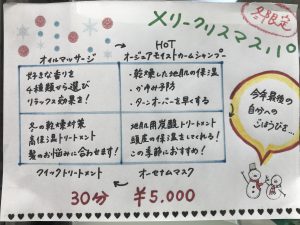 冬限定
メリークリスマスパ
オイルマッサージ
HOT
オージュアモイストカームシャンプー
好きな香りを
4種類から選び
リラックス効果を!
・乾燥した地肌の保湿
・かゆみ予防
・ターンオーバーを早くする
冬の乾燥対策
高保湿トリートメント
髪のお悩みに合わせます!
地肌用炭酸トリートメント
頭皮の保湿もしてくれる!
この季節におすすめ!
今年最後の
自分への
ごほうびを…
クイックトリートメント
オーセナムマスク
30分 ¥5.000